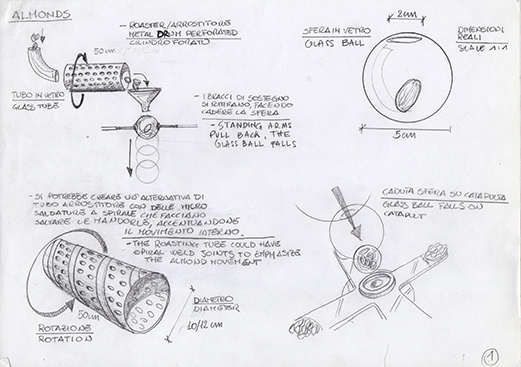 ALMONDS
- ROASTER/ARROSTITORE
METAL DRUM PERFORATED
CILINDRO FORATO
50cm
TUBO IN VETRO
GLASS TUBE
- I BRACCI DI SOSTEGNO
SI RITIRANO, FACENDO
CADERE LA SFERA
- STANDING ARMS
PULL BACK, THE
GLASS BALL FALLS
2cm
SFERA IN VETRO
GLASS BALL
DIMENSIONI
REALI
SCALE 1:1
5cm
- SI POTREBBE CREARE UN'ALTERNATIVA DI
TUBO ARROSTITORE CON DELLE MICRO
SALDATURE A SPIRALE CHE FACCIANO
SALTARE LE MANDORLE, ACCENTUANDONE
IL MOVIMENTO INTERNO.
- THE ROASTING TUBE COULD HAVE
SPIRAL WELD JOINTS TO EMPHASIZE
THE ALMOND MOVEMENT
50cm
DIAMETRO
DIAMETER
10/12 cm
ROTAZIONE
ROTATION
CADUTA SFERA SU CATAPULTA
GLASS BALL FALLS ON
CATAPULT
1